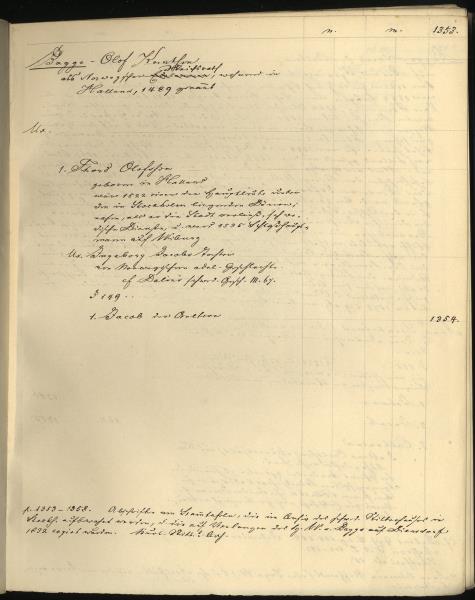 n. m. 1353.
Bagge - Olof Knutson
als Norwegscher Reichsrath, wohnend in
Halland, 1489 genannt
Ux.
1. Thord Olofsohn
geboren in Halland
war 1522 einer der Hauptleute
die in Stockholm liegenden Dänen,
als er die Stadt verließ, schwe-
dische Dienste, u. ward 1535 Schloßhaupt-
mann auf Wiburg
Ux. Ingeborg Jacobs Tochter
des Norwegischen adel. Geschlechts
cf Dalins schwed. Gesch. III. 67.
§ 149..
1. Jacob der Aeltere 1354.
p. 1353-1358. Abschriften von Stammtafeln, die im Archiv des schwed. Ritterhauses in
Stockh. aufbewahrt werden, u. die auf Verlangen des v. Bagge auf Diensdorf
1832 copirt wurden.